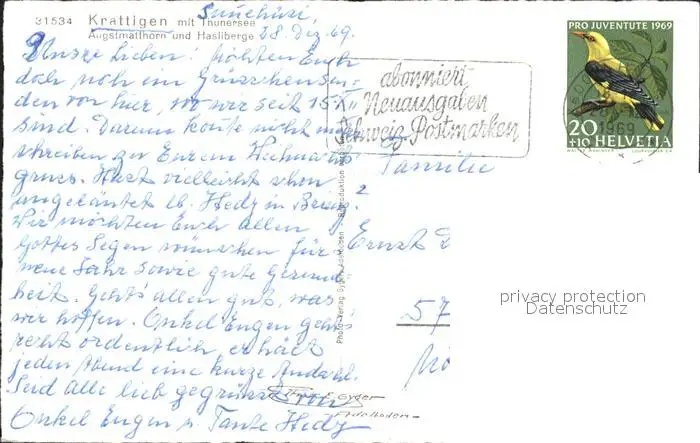 Sunchüsi,
31534 Krattigen mit Thunersee
Augstmatthorn und Hasliberge
28 Dez. 69.
Unsre Lieben! Möchten Euch
doch noch ein Grüsschen sen-
den von hier, wo wir seit 15. XII
sind. Darum konte nicht mehr
schreiben zu Eurem Weihnachts
gruss. Hast vielleicht schon
angeläutet lb. Hedy in Brienz?
Wir möchten Euch allen
Gottes Segen wünschen für's
neue Jahr sowie gute Gesund-
heit. Geht's allen gut, was
wir hoffen. Onkel Eugen geht's
recht ordentlich, er hält
jeden Abend eine kurze Andacht.
Seid alle lieb gegrüsst von
Onkel Eugen u. Tante Hedy
abonniert
Neuausgaben
Schweiz. Postmarken
PRO JUVENTUTE 1969
20
+10 HELVETIA
1969
Familie
Ernst
57
Photo-Verlag Gyger, Adelboden
Reproduktion
Gyger
Adelboden
privacy protection
Datenschutz